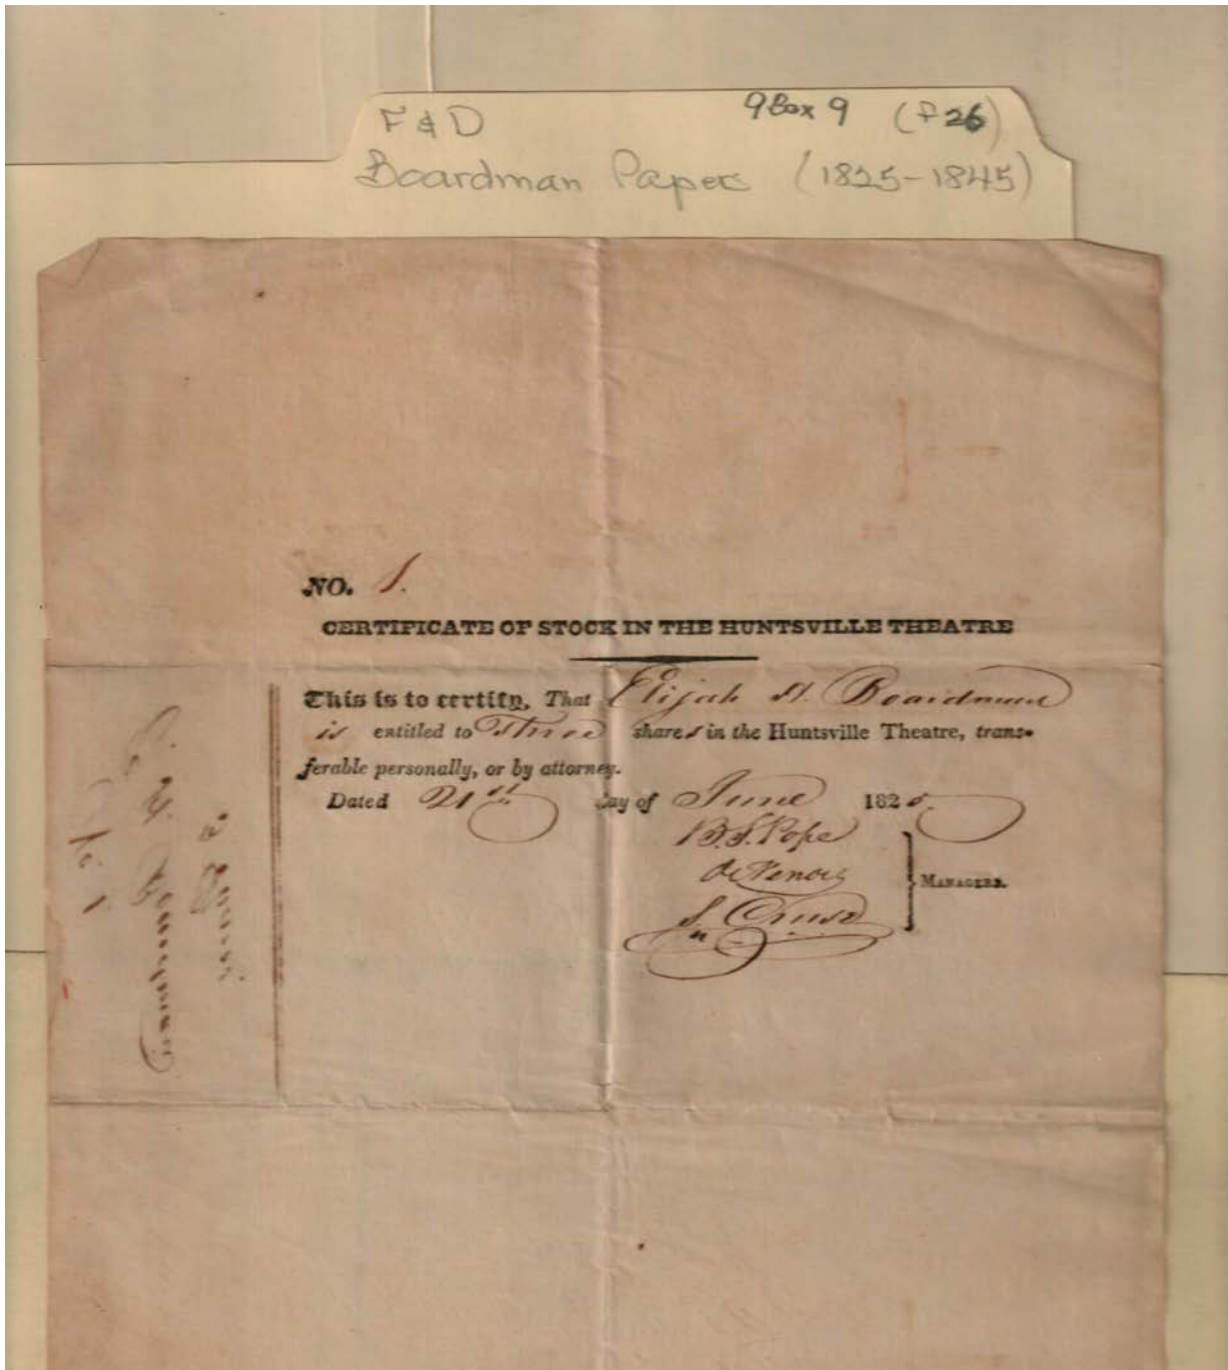 F & D 9 Box 9 (f 26)
Boardman Papers (1825-1845)
NO. 1.
CERTIFICATE OF STOCK IN THE HUNTSVILLE THEATRE
This is to certify, That Elijah H. Boardman
is entitled to Three shares in the Huntsville Theatre, trans-
ferable personally, or by attorney.
Dated 21st day of June 1825.
B. S. Pope
S. Cruse
MANAGERS.